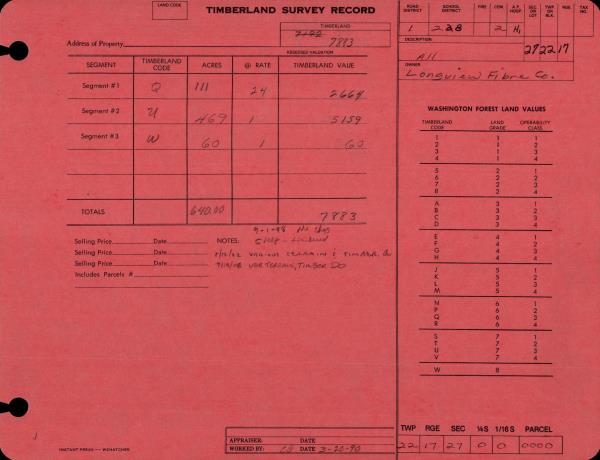 LAND CODE
TIMBERLAND SURVEY RECORD
TIMBERLAND
7883
Address of Property
ASSESSED VALUATION
SEGMENT TIMBERLAND CODE ACRES @ RATE TIMBERLAND VALUE
Segment #1 Q 111 24 2664
Segment #2 U 469 11 5159
Segment #3 W 60 1 60
TOTALS 640.00 7883
Selling Price Date NOTES:
Selling Price Date
Selling Price Date
Includes Parcels #
VARIOUS TERRAIN & TIMBER
VAR TERRAIN, TIMBER DO
APPRAISER: DATE
WORKED BY: CB DATE 3-20-90
INSTANT PRESS — WENATCHEE
ROAD DISTRICT SCHOOL DISTRICT FIRE CEM. A.P. HOSP. SEC. OR LOT TWP OR BLK. RGE. TAX NO.
1 228 2 H1
272217
DESCRIPTION
All
OWNER
Longview Fibre Co.
WASHINGTON FOREST LAND VALUES
TIMBERLAND CODE LAND GRADE OPERABILITY CLASS
1 1 1
2 1 2
3 1 3
4 1 4
5 2 1
6 2 2
7 2 3
8 2 4
A 3 1
B 3 2
C 3 3
D 3 4
E 4 1
F 4 2
G 4 3
H 4 4
J 5 1
K 5 2
L 5 3
M 5 4
N 6 1
P 6 2
Q 6 3
R 6 4
S 7 1
T 7 2
U 7 3
V 7 4
W 8
TWP RGE SEC ¼S 1/16S PARCEL
22 17 27 0 0 0000